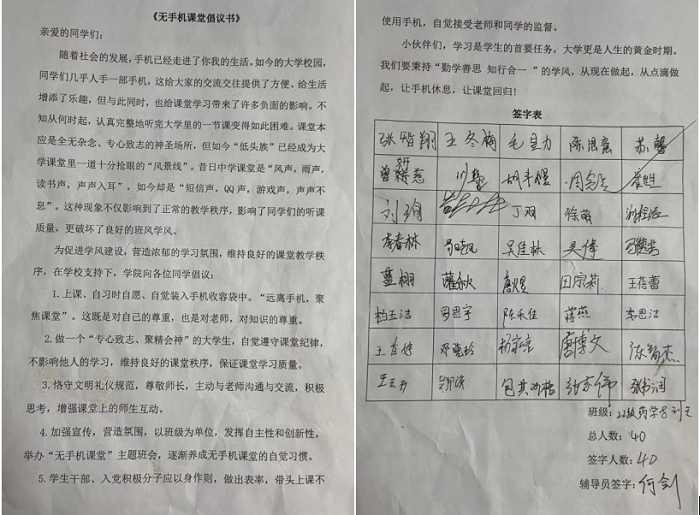 《无手机课堂倡议书》
亲爱的同学们：
随着社会的发展，手机已经走进了你我的生活。如今的大学校园，
同学们几乎人手一部手机，这给大家的交流交往提供了方便、给生活
增添了乐趣，但与此同时，也给课堂学习带来了许多负面的影响。不
知从何时起，认真完整地听完大学里的一节课变得如此困难。课堂本
应是全无杂念、专心致志的神圣场所，但如今“低头族”已经成为大
学课堂里一道十分抢眼的“风景线”。昔日中学课堂是“风声，雨声，
读书声，声声入耳”，如今却是“短信声，QQ声，游戏声，声声不
息”。这种现象不仅影响到了正常的教学秩序，影响了同学们的听课
质量，更破坏了良好的班风学风。
为促进学风建设，营造浓郁的学习氛围，维持良好的课堂教学秩
序，在学校支持下，学院向各位同学倡议：
1.上课、自习时自愿、自觉装入手机收容袋中。“远离手机，聚
焦课堂”。这既是对自己的尊重，也是对老师，对知识的尊重。
2.做一个“专心致志、聚精会神”的大学生，自觉遵守课堂纪律，
不影响他人的学习，维持良好的课堂秩序，保证课堂学习质量。
3.恪守文明礼仪规范，尊敬师长，主动与老师沟通与交流，积极
思考，增强课堂上的师生互动。
4.加强宣传，营造氛围，以班级为单位，发挥自主性和创新性，
举办“无手机课堂”主题班会，逐渐养成无手机课堂的自觉习惯。
5.学生干部、入党积极分子应以身作则，做出表率，带头上课不
使用手机，自觉接受老师和同学的监督。
小伙伴们，学习是学生的首要任务，大学更是人生的黄金时期。
我们要秉持“勤学善思 知行合一 ”的学风，从现在做起，从点滴做
起，让手机休息，让课堂回归！
签字表
张智翔 王冬梅 毛星力 陈思意 苏馨
丁羽 徐萌
李春林 吴佳林 吴倩
蓝栩 唐煜 田宗莉 王蓓蕾
陈禾佳 蒋燕 李思洁
唐博文 陈智杰
王玉丹
班级：22级药学
总人数：40
签字人数：40
辅导员签字：何剑